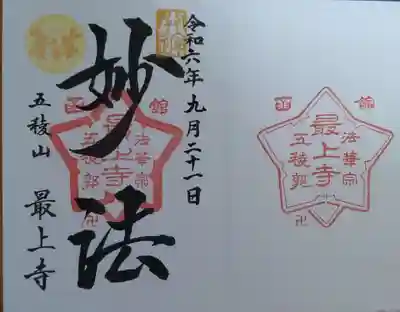 令和六年九月二十一日
妙法
五稜山 最上寺
函館
法華宗
最上寺
五稜郭
卍
函館
法華宗
最上寺
五稜郭
卍